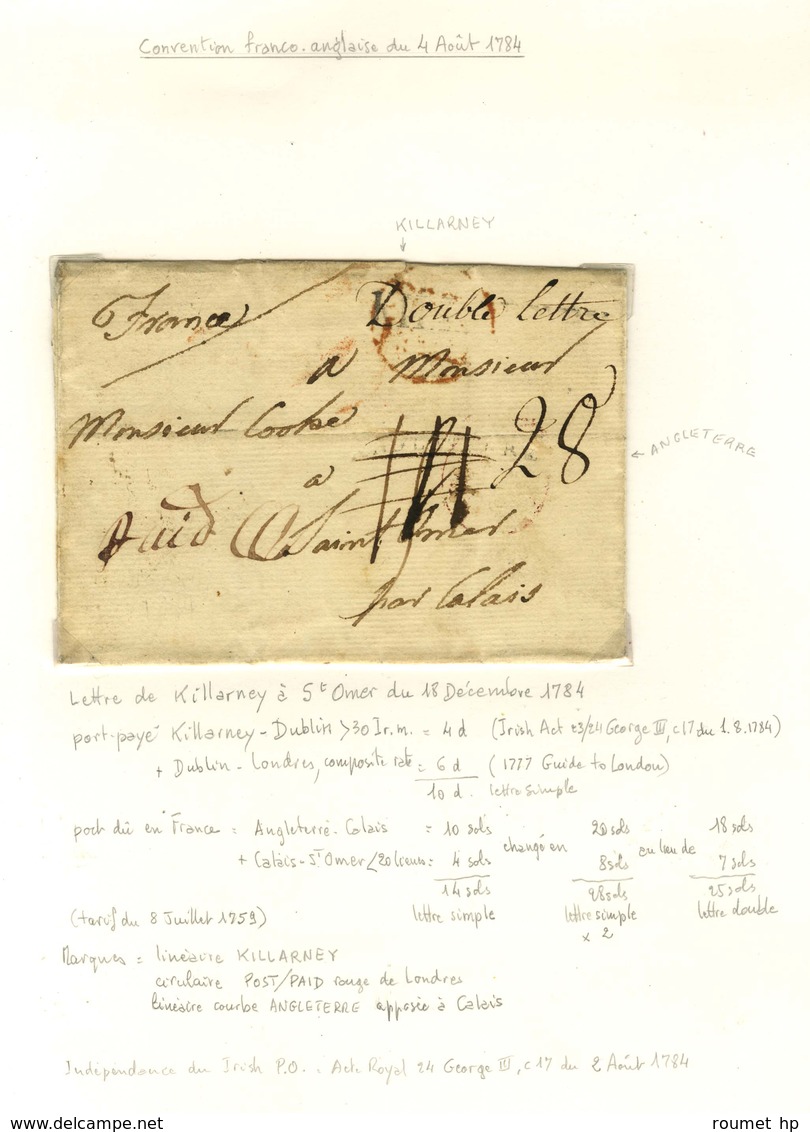 Convention franco-anglaise du 4 Août 1784
KILLARNEY
France
Double lettre
a Monsieur
Monsieur Cooke
28
ANGLETERRE
a
paid
Saint Omer
par Calais
Lettre de Killarney à St Omer du 18 Décembre 1784
port-payé Killarney-Dublin >30 Ir.m. = 4 d (Irish Act 23/24 George III, c17 du 1.8.1784)
+ Dublin-Londres, composite rate = 6 d (1777 Guide to London)
10 d. lettre simple
port dû en France = Angleterre-Calais = 10 sols changé en 20 sols au lieu de 18 sols
+ Calais-St Omer <20 lieues = 4 sols 8 sols 7 sols
14 sols 28 sols 25 sols
(tarif du 8 Juillet 1759) lettre simple lettre simple lettre double
x 2
Marques = linéaire KILLARNEY
circulaire POST/PAID rouge de Londres
linéaire courbe ANGLETERRE apposée à Calais
Indépendance du Irish P.O. : Acte Royal 24 George III, c17 du 2 Août 1784
roumet hp